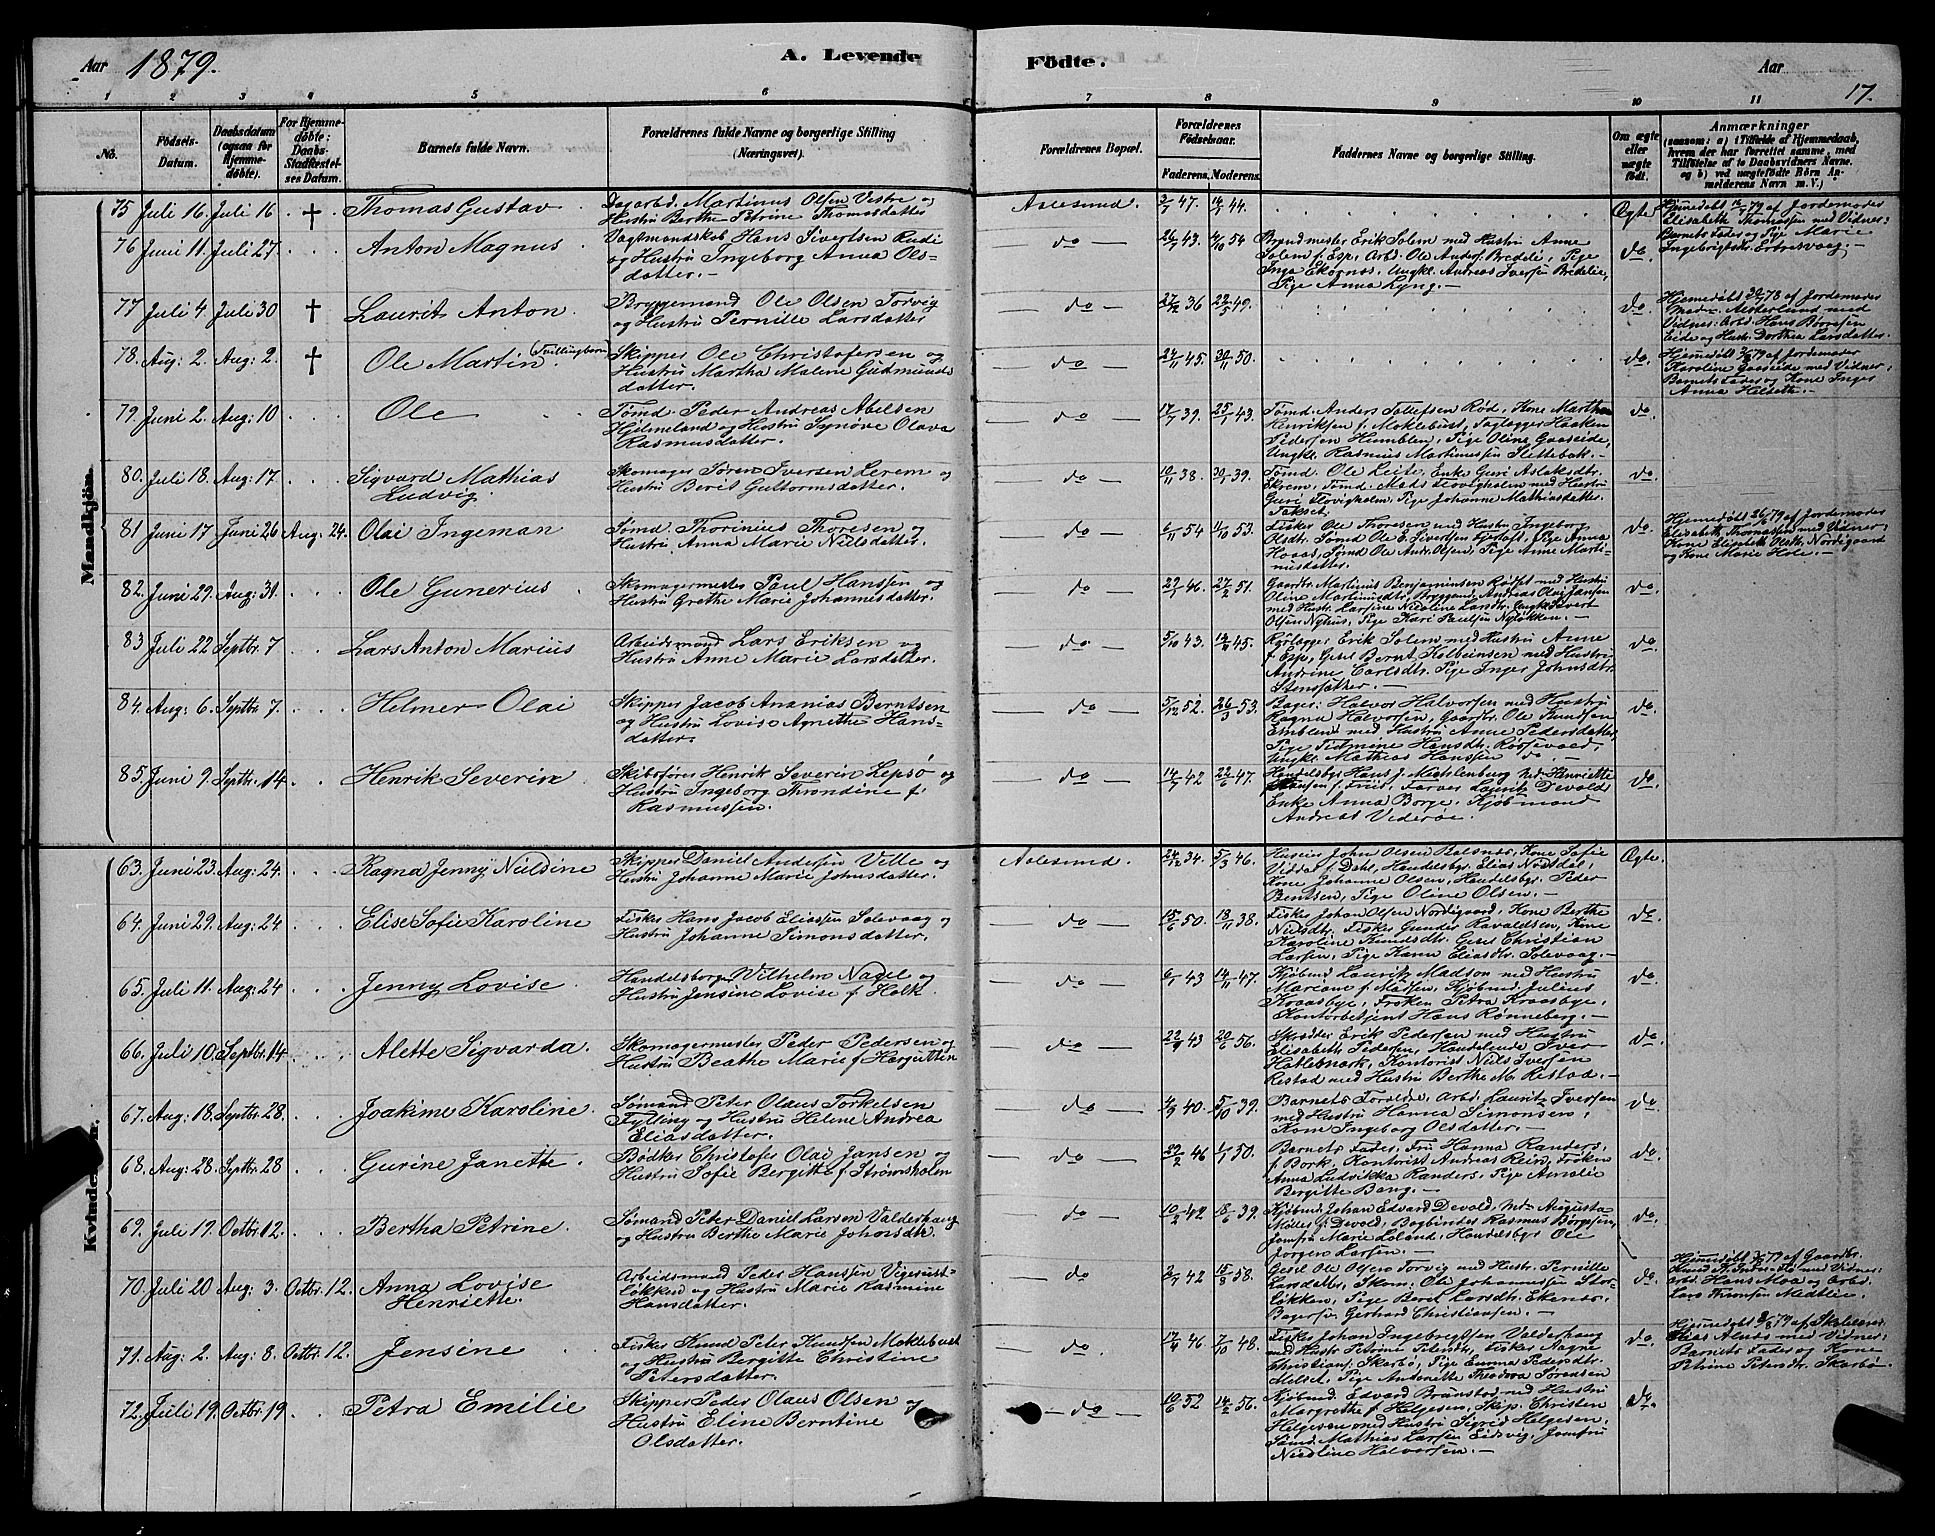 Aar 1879. A. Levende Födte. Aar 17.
1 2 3 4 5 6 7 8 9 10 11
No. Födsels-Datum. Daabsdatum (ogsaa for Hjemmedöbte). For Hjemmedöbte: Daabs-Stadfæstelses Datum. Barnets fulde Navn. Forældrenes fulde Navne og borgerlige Stilling (Næringsvei). Forældrenes Bopæl. Forældrenes Födselsaar. Faderens. Moderens. Faddernes Navne og borgerlige Stilling. Om ægte eller uægte födt. Anmærkninger (saasom: a) i Tilfælde af Hjemmedaab, hvem der har forrettet samme, med Tilföielse af to Daabsvidners Navne, og b) ved uægtefödte Börn Anmelderens Navn m. V.)
Mandkjön.
75 Juli 16. Juli 16 . † Thomas Gustav
Dagarbd. Martinus Olsen Vestre og
Hustru Berthe Petrine Thomasdatter
Aalesund. 47. 44. Ægte
Hjemedöbt 16/7 79 af Jordemoder
Elisabeth Thomassen med Vidner:
Barnets Fader og Pige Marie
76 Juni 11. Juli 27. Anton Magnus
Vagtmandskob Hans Sivertsen Rudi
og Hustru Ingeborg Anna Ols-
datter.—
do — 26/7 43. 4/10 54
Brandmester Erik Solem med Hustru Anne
Solem f. Esp, Arbd. Ole Anders. Bredeli, Pige
Inga Ekornes, Ungkl. Andreas Iversen Bredelie,
Pige Anna Lyng.—
do.
77 Juli 4 Juli 30 † Laurits Anton.
Bryggemand Ole Olsen Torvig
og Hustru Pernille Larsdatter
do — 36 22/5 49. do
Hjemedöbt 30/7 78 af Jordemoder
med
Vidner: Arbd. Hans Börresen
Eide og Hustr. Dorthea Larsdatter.
78. Aug: 2. Aug: 2. † Ole Martin. (Tvillingbarn)
Skipper Ole Christofersen og
Hustru Martha Malene Gudmunds
datter.
do — 24/11 45. 30/11 50. do.
Hjemedöbt 2/8 79 af Jordemoder
Karoline Gaaseide med Vidner:
Barnets Fader og Kone Inger
Anna Helseth.—
79. Juni 2. Aug: 10 Ole
Tömd. Peder Andreas Abelsen
Hjelmeland og Hustru Synöve Olava
Rasmusdatter.
do — 17/7 39. 25/1 43.
Tömd. Anders Tollefsen Röd, Kone Marthe
Henriksen f. Moklebust, Taglægger Haaken
Pedersen Humblen, Pige Oline Gaaseide,
Ungkl. Rasmus Martinussen Slettebak.—
do.
80. Juli 18. Aug: 17. Sigvard Mathias
Ludvig.
Skomager Sören Iversen Lerem og
Hustru Berit Guttormsdatter.
do — 10/11 38. 30/1 39.
Tömd. Ole Leite, Enke Guri Aslaksdtr.
Ekrem, Tömd. Mads Flovigholm med Hustru
Guri Flovigholm, Pige Johanne Mathiasdatter
do.
81 Juni 17 Juni 26 Aug. 24. Olai Ingeman
Tömd. Thorinius Thoresen og
Hustru Anna Marie Nielsdatter.
do — 6/11 54 11/10 53.
Fisker Ole Thoresen med Hustru Ingeborg
Olsdtr. Tömd. Ole E. Sivertsen Pige Anna
Hoaas, Tömd. Ole Andr. Olsen, Pige Anne Marti-
nusdatter.
do.
Hjemedöbt 26/6 79 af Jordemoder
Elisabeth Thomassen med Vidner:
Kone Elisabeth Olsdtr. Nordigaard
og Kone Marie Hole.—
82. Juni 29. Aug: 31. Ole Gunerius
Skomagermester Paul Hanssen og
Hustru Grethe Marie Johannesdatter.
do — 46. 27/2 51.
Gaardbr. Martinus Benjaminsen Rödset med Hustru
Oline Martinusdtr, Bryggemd. Andreas Olai Jansen
med Hustr. Larsine Nicoline Larsdtr. Ungkl. Sivert
Olsen Nyhus, Pige Kari Paulsen Nylökken.—
do.
83 Juli 22 Septbr. 7 Lars Anton Marius
Arbeidsmand Lars Eriksen og
Hustru Anne Marie Larsdatter.
do — 5/10 43. 45.
Rörlægger Erik Solem med Hustru Anne
f. Esp, Gesel Bernt Kolbeinsen med Hustru
Andrine Carlsdtr. Pige Inger Johnsdtr.
do.
84. Aug: 6. Septbr. 7. Helmer Olai
Skipper Jacob Ananias Berntsen
og Hustru Lovise Agnethe Hans-
datter.
do — 5/12 52. 26/3 53.
Bager: Halvor Halvorsen med Hustru
Ragna Halvorsen, Gaardbr. Ole Knudsen
Emblem med Hustru Anne Pedersdatter,
Pige Hansdtr. Rörsevold,
Ungkl. Mathias Hanssen do.—
do.
85. Juni 9. Septbr. 14 Henrik Severin
Skibsförer Henrik Severin Lepsö og
Hustru Ingeborg Throndine f.
Rasmussen.
do — 14/7 42 22/6 47.
Handelsbgr Hans J. Mechlenburg Md. Henriette
Hansen f. Friis, Farver Lauritz Devold,
Enke Anna Borge, Kjöbmand
Andreas Videröe.
do.
Kvindekjön.
63. Juni 23. Aug: 24. Ragna Jenny Nieldine
Skipper Daniel Andersen Velle og
Hustru Johanne Marie Johnsdatter.
Aalesund. 24/12 34. 5/3 46.
Huseier John Olsen Balsnes, Kone Sofie
Viddal f. Dahl, Handelsbgr. Elias Norddal,
Kone Johanne Olsen, Handelsbgr. Peder
Bentsen, Pige Oline Olsen.—
Ægte.
64. Juni 29. Aug: 24. Elise Sofie Karoline
Fisker Hans Jacob Eliassen Solevaag og
Hustru Johanne Simonsdatter.
do — 15/6 50. 18/11 38.
Fisker Johan Olsen Nordigaard, Kone Berthe
Nielsdtr. Fisker Gunder Ravaldsen, Kone
Karoline Knudsdtr. Gesel Christian
Larsen, Pige Karen Eliasdtr. Solevaag.—
do.
65. Juli 11. Aug: 24 Jenny Lovise.
Handelsborg. Wilhelm Nagel og
Hustru Jensine Lovise f. Holk.
do — 43 14/11 47.
Kjöbmd. Lauritz Madson med Hustru
Mariane f. Massen, Kjöbmd. Julius
Kraasbye, Fröken Petra Kraasbye,
Kontorbetjent Hans Rönneberg.—
do
66. Juli 10. Septbr. 14 Alette Sigvarda.
Skomagermester Peder Pedersen og
Hustru Beathe Marie f.
do — 22/9 43 20/6 56.
Skrædder Erik Pedersen med Hustru
Elisabeth Pedersen, Handelende Iver
Hatlebrak, Kontorist Niels Iversen
Restad med Hustru Berthe M. Restad.—
do.
67. Aug: 18. Septbr. 28. Joakime Karoline.
Sömand Peter Olaus Torkelsen
Fylling og Hustru Helene Andrea
Eliasdatter.
do — 4/9 40. 5/10 39.
Barnets Forældre, Arbd. Lauritz Iversen
med Hustru Hanna Simonsen,
Kone Ingeborg Olsdatter.—
do.
68. Aug: 28. Septbr 28 Gurine Janette.
Bödker Christofer Olai Jansen og
Hustru Sofie Bergitte f. Strömsholm
do — 22/2 46 1/7 50.
Barnets Fader, Fru Hanna Randers,
f. Bork, Kontorist Andreas Rein, Fröken
Anna Ludvikka Randers, Pige Amalie
Bergitte Bang.—
do.
69. Juli 19. Octbr. 12. Bertha Petrine.
Sömand Peter Daniel Larsen Valderhaug
og Hustru Berthe Marie Johnsdtr.
do — 10/2 42 18/6 39.
Kjöbmd. Johan Edvard Devold, Md. Augusta
Möller f. Devold, Bogbinder Rasmus Börresen,
Jomfru Marie Loland, Handelsbgr. Ole
Jörgen Larsen.—
do.
70. Juli 20 Aug: 3. Octbr. 12. Anna Lovise
Henriette.
Arbeidsmand Peder Hanssen Vigerust-
Lökken og Hustru Marie Rasmine
Hansdatter.
do 42 15/8 58.
Gesel Ole Olsen Torvig med Hustr. Pernille
Larsdatter, Skom: Ole Johannessen Stor-
lökken, Pige Beret Larsdtr. Ekenes,
Bagersv. Gerhard Christiansen.—
do.
Hjemedöbt 3/8 79 af Gaardbr.
med Vidner:
Arbd. Hans Moa og Arbd.
Lars Thomsen Medblie.
71. Aug: 2. Aug: 8. Octbr. 12. Jensine
Fisker Knud Peter Knudsen Moklebust
og Hustru Bergitte Christine
Petersdatter.
do. 46. 7/10 48.
Fisker Johan Ingebrigtsen Valderhaug
med Hustr. Petrine Petersdtr. Fisker Magne
Christians. Skarbö, Pige Emma Pedersdtr.
Melset, Pige Antonette Theodora Sörensen
do.
Hjemedöbt 8/8 79 af Skolelærer
Elias Alnæs med Vidner:
Barnets Fader og Kone
Petrine Petersdtr. Skarbö
72. Juli 19. Octbr. 19. Petra Emilie
Skipper Peder Olaus Olsen og
Hustru Eline Berntine
Olsdatter.
— do — 10/6 52 14/2 56.
Kjöbmd. Edvard Brunstad med Hustru
Margrethe f. Helgesen, Skip. Christen
Helgesen med Hustru Sigrid Helgesen,
Sömd. Mathias Larsen Eidsvig, Jomfru
Nicoline Halvorsen.—
do.